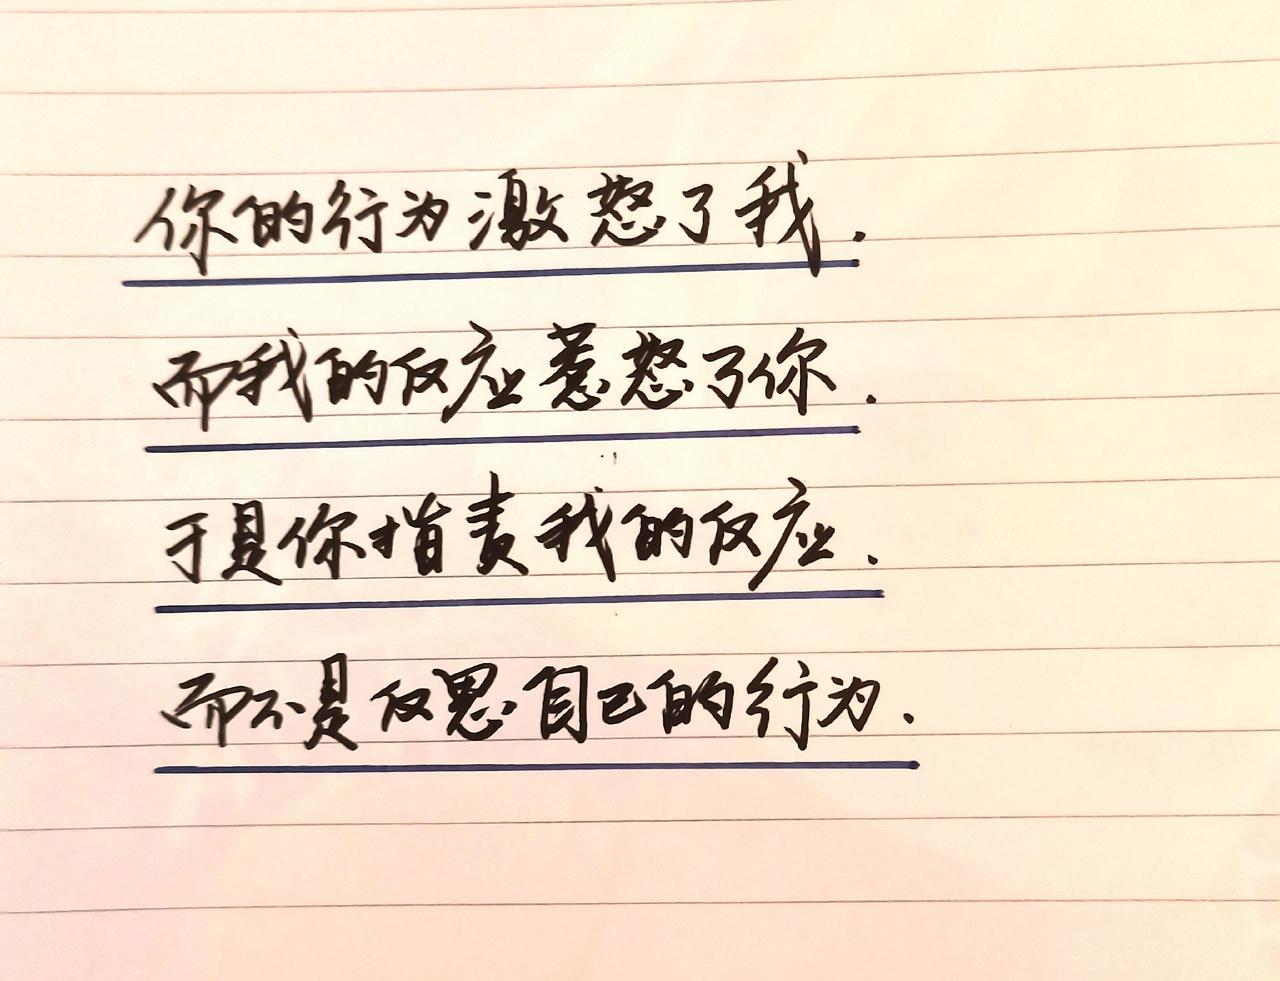 你的行为激怒了我.
而我的反应惹怒了你.
于是你指责我的反应.
而不是反思自己的行为.